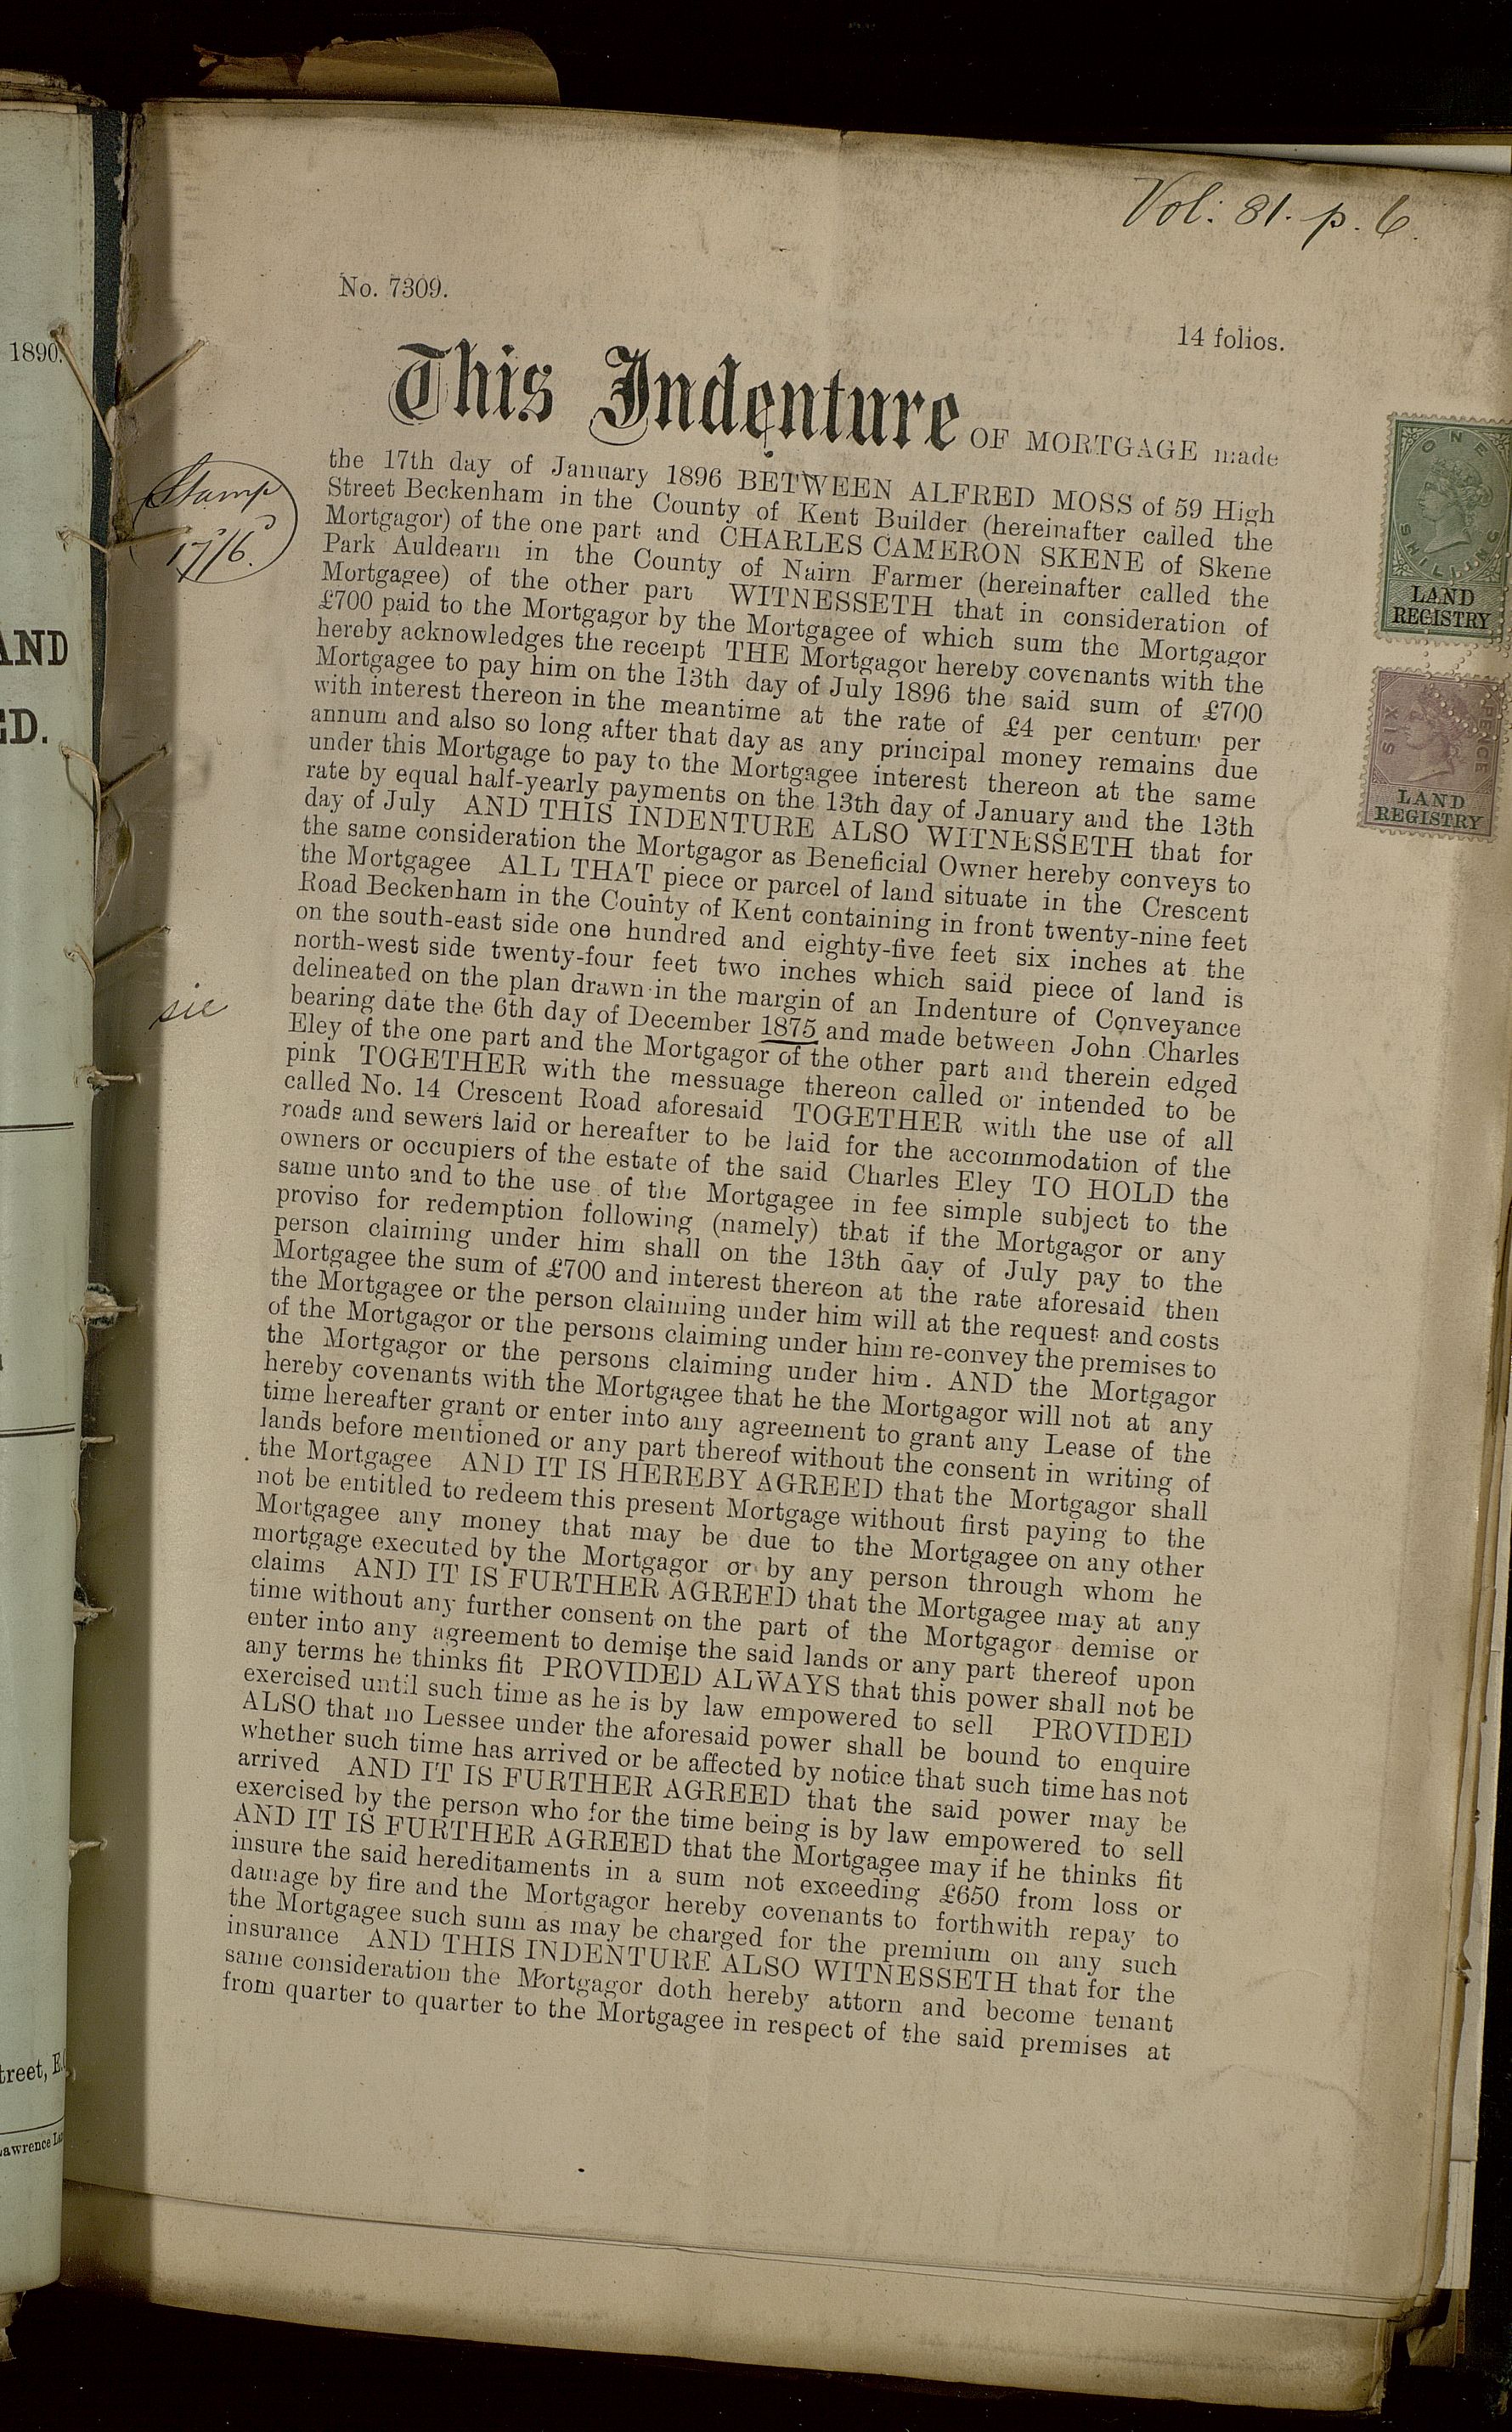 Vol: 81. p. 6.
No. 7309.
14 folios.
This Indenture OF MORTGAGE made
the 17th day of January 1896 BETWEEN ALFRED MOSS of 59 High
Street Beckenham in the County of Kent Builder (hereinafter called the
Mortgagor) of the one part and CHARLES CAMERON SKENE of Skene
Park Auldearn in the County of Nairn Farmer (hereinafter called the
Mortgagee) of the other part WITNESSETH that in consideration of
£700 paid to the Mortgagor by the Mortgagee of which sum the Mortgagor
hereby acknowledges the receipt THE Mortgagor hereby covenants with the
Mortgagee to pay him on the 13th day of July 1896 the said sum of £700
with interest thereon in the meantime at the rate of £4 per centum per
annum and also so long after that day as any principal money remains due
under this Mortgage to pay to the Mortgagee interest thereon at the same
rate by equal half-yearly payments on the 13th day of January and the 13th
day of July AND THIS INDENTURE ALSO WITNESSETH that for
the same consideration the Mortgagor as Beneficial Owner hereby conveys to
the Mortgagee ALL THAT piece or parcel of land situate in the Crescent
Road Beckenham in the County of Kent containing in front twenty-nine feet
on the south-east side one hundred and eighty-five feet six inches at the
north-west side twenty-four feet two inches which said piece of land is
delineated on the plan drawn in the margin of an Indenture of Conveyance
bearing date the 6th day of December 1875 and made between John Charles
Eley of the one part and the Mortgagor of the other part and therein edged
pink TOGETHER with the messuage thereon called or intended to be
called No. 14 Crescent Road aforesaid TOGETHER with the use of all
roads and sewers laid or hereafter to be laid for the accommodation of the
owners or occupiers of the estate of the said Charles Eley TO HOLD the
same unto and to the use of the Mortgagee in fee simple subject to the
proviso for redemption following (namely) that if the Mortgagor or any
person claiming under him shall on the 13th day of July pay to the
Mortgagee the sum of £700 and interest thereon at the rate aforesaid then
the Mortgagee or the person claiming under him will at the request and costs
of the Mortgagor or the persons claiming under him re-convey the premises to
the Mortgagor or the persons claiming under him. AND the Mortgagor
hereby covenants with the Mortgagee that he the Mortgagor will not at any
time hereafter grant or enter into any agreement to grant any Lease of the
lands before mentioned or any part thereof without the consent in writing of
the Mortgagee AND IT IS HEREBY AGREED that the Mortgagor shall
not be entitled to redeem this present Mortgage without first paying to the
Mortgagee any money that may be due to the Mortgagee on any other
mortgage executed by the Mortgagor or by any person through whom he
claims AND IT IS FURTHER AGREED that the Mortgagee may at any
time without any further consent on the part of the Mortgagor demise or
enter into any agreement to demise the said lands or any part thereof upon
any terms he thinks fit PROVIDED ALWAYS that this power shall not be
exercised until such time as he is by law empowered to sell PROVIDED
ALSO that no Lessee under the aforesaid power shall be bound to enquire
whether such time has arrived or be affected by notice that such time has not
arrived AND IT IS FURTHER AGREED that the said power may be
exercised by the person who for the time being is by law empowered to sell
AND IT IS FURTHER AGREED that the Mortgagee may if he thinks fit
insure the said hereditaments in a sum not exceeding £650 from loss or
damage by fire and the Mortgagor hereby covenants to forthwith repay to
the Mortgagee such sum as may be charged for the premium on any such
insurance AND THIS INDENTURE ALSO WITNESSETH that for the
same consideration the Mortgagor doth hereby attorn and become tenant
from quarter to quarter to the Mortgagee in respect of the said premises at
Stamp
17/6.
sic
ONE
SHILLING
LAND
REGISTRY
SIX
PENCE
LAND
REGISTRY
1890.
AND
ED.
treet, E.
Lawrence